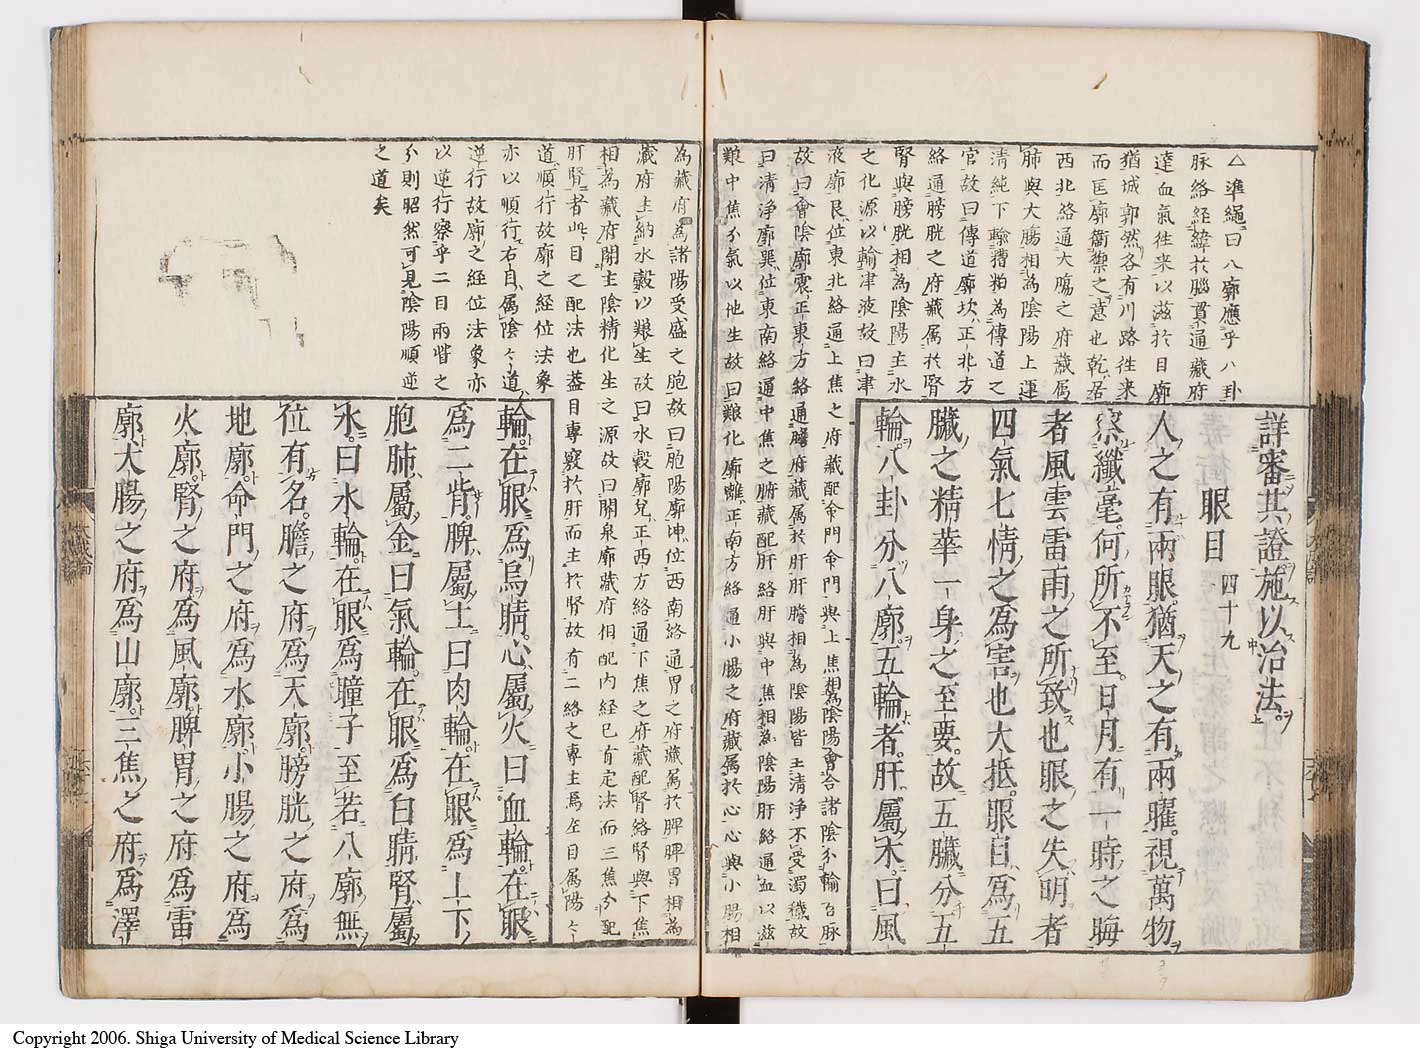 △準繩曰八廓應乎八卦
脉絡經緯於腦貫通藏府
達血氣徃来以滋於目廓
猶城郭然各有川路徃来
而匡廓衞禦之意也乾居
西北絡通大腸之府藏属
肺與大腸相為陰陽上運
清純下輸糟粕為傳道之
官故曰傳道廓坎正北方
絡通膀胱之府藏属於腎
腎與膀胱相為陰陽主水
之化源以輸津液故曰津
液廓艮位東北絡通上焦之府藏配命門命門與上焦相為陰陽會合諸陰分輸百脉
故曰會陰廓震正東方絡通膽府藏属於肝肝膽相為陰陽皆主清淨不受濁穢故
曰清淨廓巽位東南絡通中焦之府藏配肝絡肝與中焦相為陰陽肝絡通血以滋
飬中焦分氣以化生故曰飬化廓離正南方絡通小腸之府藏属於心心與小腸相
詳審其證施以治法
眼目 四十九
人之有兩眼猶天之有兩曜視萬物
察纖毫何所不至日月有一時之晦
者風雲雷雨之所致也眼之失明者
四氣七情之為害也大抵眼目為五
臟之精華一身之至要故五臟分五
輪八卦分八廓五輪者肝屬木曰風
為藏府為諸陽受盛之胞故曰胞陽廓坤位西南絡通胃之府藏属於脾脾胃相為
藏府主納水穀以飬生故曰水穀廓兌正西方絡通下焦之府藏配腎絡腎與下焦
相為藏府關主陰精化生之源故曰關泉廓藏府相配内経已有定法而三焦分配
肝腎者此目之配法也蓋目專竅於肝而主於腎故有二絡之專主焉左目属陽々
道順行故廓之経位法象
亦以順行右目属陰々道
逆行故廓之経位法象亦
以逆行察乎二目兩眥之
分則昭然可見陰陽順逆
之道矣
輪在眼為烏睛心屬火曰血輪在眼
為二眥脾屬土曰肉輪在眼為上下
胞肺屬金曰氣輪在眼為白睛腎屬
水曰水輪在眼為瞳子至若八廓無
位有名膽之府為天廓膀胱之府為
地廓命門之府為水廓小腸之府為
火廓腎之府為風廓脾胃之府為雷
廓大腸之府為山廓三焦之府為澤
Copyright 2006. Shiga University of Medical Science Library